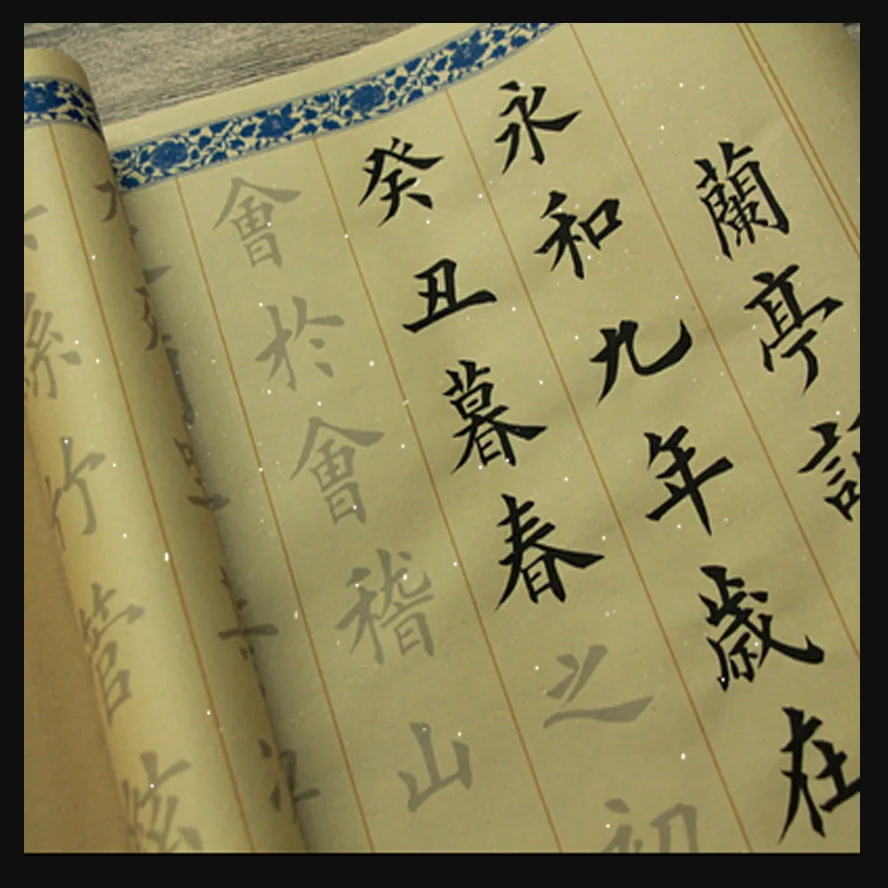 蘭亭
永和九年歲在
癸丑暮春之初
會於會稽山
絲竹管弦